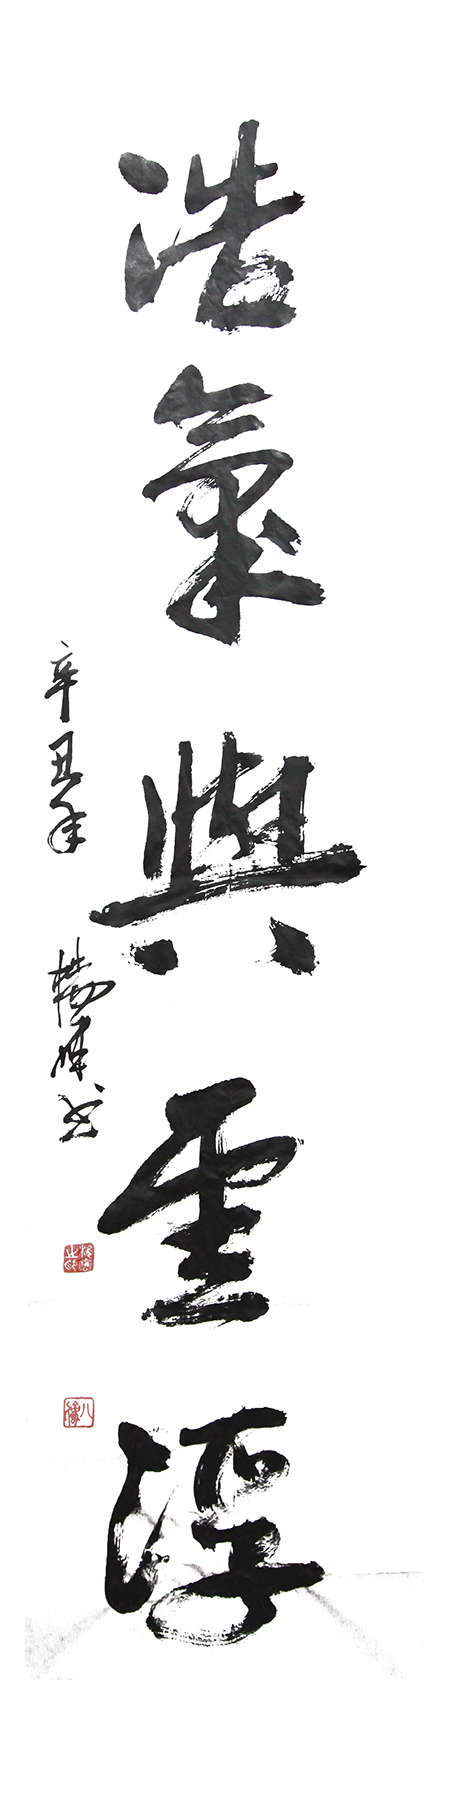 浩氣與雲浮
辛丑年 楊 书